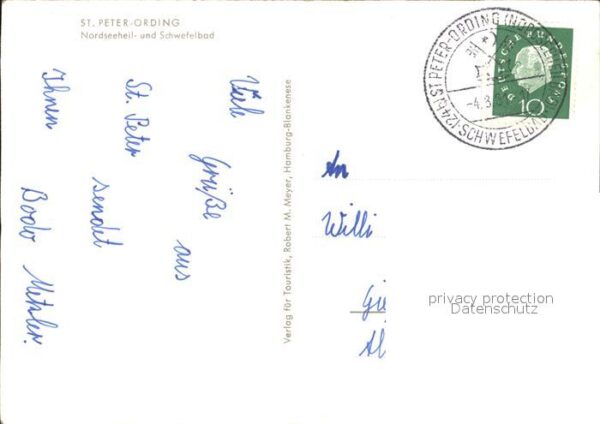 ST. PETER-ORDING
Nordseeheil- und Schwefelbad
Viele
Grüße
aus
St. Peter
sendet
Ihnen
Bodo Metzler.
Verlag für Touristik, Robert M. Meyer, Hamburg-Blankenese
(24b) ST. PETER-ORDING (NORDSEE
SCHWEFELBAD
-4.8.
DEUTSCHE BUNDESPOST
10
An
Willi
Gü
Al
privacy protection
Datenschutz